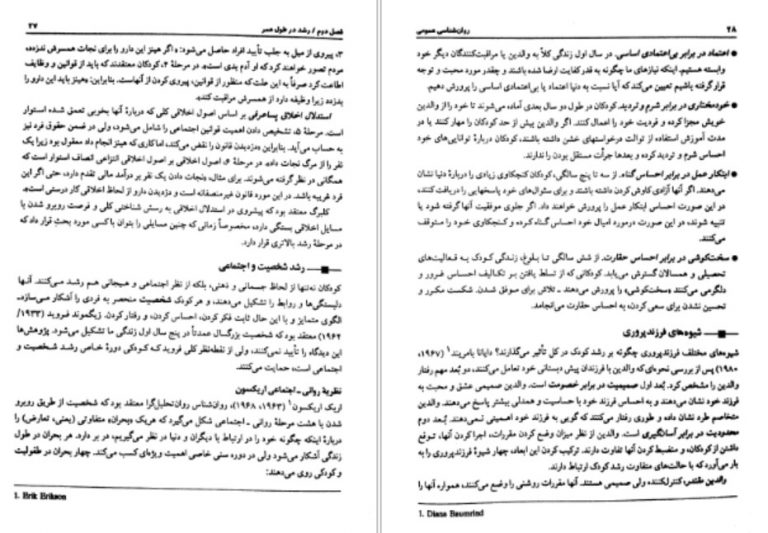 فصل دوم / رشد در طول عمر ۲۷
۳، پیروی از میل به جلب تأیید افراد حاصل می‌شود: «اگر هینز این دارو را برای نجات همسرش ندزدد،
مردم تصور خواهند کرد که او آدم بدی است». در مرحلهٔ ۴، کودکان معتقدند که باید از قوانین و وظایف
اطاعت کرد صرفاً به این علت که منظور از قوانین، پیروی کردن از آنهاست. بنابراین: «هینز باید این دارو را
بدزدد زیرا وظیفه دارد از همسرش مراقبت کند».
استدلال اخلاق پساعرفی بر اساس اصول اخلاقی کلی که دربارهٔ آنها بخوبی تعمق شده استوار
است. مرحلهٔ ۵، تشخیص دادن اهمیت قوانین اجتماعی را شامل می‌شود، ولی در ضمن حقوق فرد نیز
به حساب می‌آید. بنابراین «دزدیدن قانون را نقض می‌کند، اما کاری که هینز انجام داد معقول بود زیرا یک
نفر را از مرگ نجات داد». در مرحلهٔ ۶، اصول اخلاقی بر اصول اخلاقی انتزاعی انصاف استوار است که
همگانی در نظر گرفته می‌شوند. برای مثال، «نجات دادن یک نفر بر درآمد مالی تقدم دارد، حتی اگر این
فرد غریبه باشد. در این مورد قانون غیرمنصفانه است و دزدیدن دارو از لحاظ اخلاقی کار درستی است».
کلبرگ معتقد بود که پیشروی در استدلال اخلاقی به رسش شناختی کلی و فرصت روبرو شدن با
مسایل اخلاقی بستگی دارد، مخصوصاً زمانی که چنین مسایلی را بتوان با کسی مورد بحث قرار داد که
در مرحلهٔ رشد بالاتری قرار دارد.
رشد شخصیت و اجتماعی
کودکان نه‌تنها از لحاظ جسمانی و ذهنی، بلکه از نظر اجتماعی و هیجانی هم رشد می‌کنند. آنها
دلبستگی‌ها و روابط را تشکیل می‌دهند، و هر کودک شخصیت منحصر به فردی را آشکار می‌سازد-
الگوی متمایز و با این حال ثابت فکر کردن، احساس کردن، و رفتار کردن. زیگموند فروید (۱۹۳۳/
۱۹۶۴) معتقد بود که شخصیت بزرگسال عمدتاً در پنج سال اول زندگی ما تشکیل می‌شود. پژوهش‌ها
این دیدگاه را تأیید نمی‌کنند، ولی از نقطه‌نظر کلی فروید که کودکی دورهٔ خاص رشد شخصیت و
اجتماعی است، حمایت می‌کنند.
نظریهٔ روانی ـ اجتماعی اریکسون
اریک اریکسون۱ (۱۹۶۳، ۱۹۶۸)، روان‌شناس روان‌تحلیل‌گرا معتقد بود که شخصیت از طریق روبرو
شدن با هشت مرحلهٔ روانی ـ اجتماعی شکل می‌گیرد که هریک «بحران» متفاوتی (یعنی، تعارض) را
دربارهٔ اینکه چگونه خود را در ارتباط با دیگران و دنیا در نظر می‌گیریم، در بر دارد. هر بحران در طول
زندگی آشکار می‌شود ولی در دوره سنی خاصی اهمیت ویژه‌ای کسب می‌کند. چهار بحران در طفولیت
و کودکی روی می‌دهند:
1. Erik Erikson
۲۸ روان‌شناسی عمومی
● اعتماد در برابر بی‌اعتمادی اساسی. در سال اول زندگی کلاً به والدین یا مراقبت‌کنندگان دیگر خود
وابسته هستیم. اینکه نیازهای ما چگونه به قدر کفایت ارضا شده باشند و چقدر مورد محبت و توجه
قرار گرفته باشیم تعیین می‌کند که آیا نسبت به دنیا اعتماد یا بی‌اعتمادی اساسی را پرورش دهیم.
● خودمختاری در برابر شرم و تردید. کودکان در طول دو سال بعدی آماده می‌شوند تا خود را از والدین
خویش مجزا کرده و فردیت خود را اعمال کنند. اگر والدین بیش از حد کودکان را مهار کنند یا در
مدت آموزش استفاده از توالت درخواستهای خشن داشته باشند، کودکان دربارهٔ توانایی‌های خود
احساس شرم و تردید کرده و بعدها جرأت مستقل بودن را ندارند.
● ابتکار عمل در برابر احساس گناه. از سه تا پنج سالگی، کودکان کنجکاوی زیادی را دربارهٔ دنیا نشان
می‌دهند. اگر آنها آزادی کاوش کردن داشته باشند و برای سئوال‌های خود پاسخهایی را دریافت کنند،
در این صورت احساس ابتکار عمل را پرورش خواهند داد. اگر جلوی موفقیت آنها گرفته شود یا
تنبیه شوند، در این صورت درمورد امیال خود احساس گناه کرده و کنجکاوی خود را متوقف
می‌کنند.
● سخت‌کوشی در برابر احساس حقارت. از شش سالگی تا بلوغ، زندگی کودک به فعالیت‌های
تحصیلی و همسالان گسترش می‌یابد. کودکانی که از تسلط یافتن بر تکالیف احساس غرور و
دلگرمی می‌کنند «سخت‌کوشی» را پرورش می‌دهند ـ تلاش برای موفق شدن. شکست مکرر و
تحسین نشدن برای سعی کردن، به احساس حقارت می‌انجامد.
شیوه‌های فرزندپروری
شیوه‌های مختلف فرزندپروری چگونه بر رشد کودک در کل تأثیر می‌گذارند؟ دایانا بامریند۱ (۱۹۶۷،
۱۹۸۰) پس از بررسی نحوه‌ای که والدین با فرزندان پیش دبستانی خود تعامل می‌کنند، دو بُعد مهم رفتار
والدین را مشخص کرد. بُعد اول صمیمیت در برابر خصومت است. والدین صمیمی عشق و محبت به
فرزند خود نشان می‌دهند و به احساس فرزند خود با حساسیت و همدلی بیشتر پاسخ می‌دهند. والدین
متخاصم طرد نشان داده و طوری رفتار می‌کنند که گویی به فرزند خود اهمیتی نمی‌دهند. بُعد دوم
محدودیت در برابر آسانگیری است. والدین از نظر میزان وضع کردن مقررات، اجرا کردن آنها، توقع
داشتن از کودکان، و منضبط کردن آنها تفاوت دارند. ترکیب کردن این ابعاد، چهار شیوهٔ فرزندپروری را به
بار می‌آورد که با حالت‌های متفاوت رشد کودک ارتباط دارند.
والدین مقتدر، کنترل‌کننده، ولی صمیمی هستند. آنها مقررات روشنی را وضع می‌کنند، همواره آنها را
1. Diana Baumrind